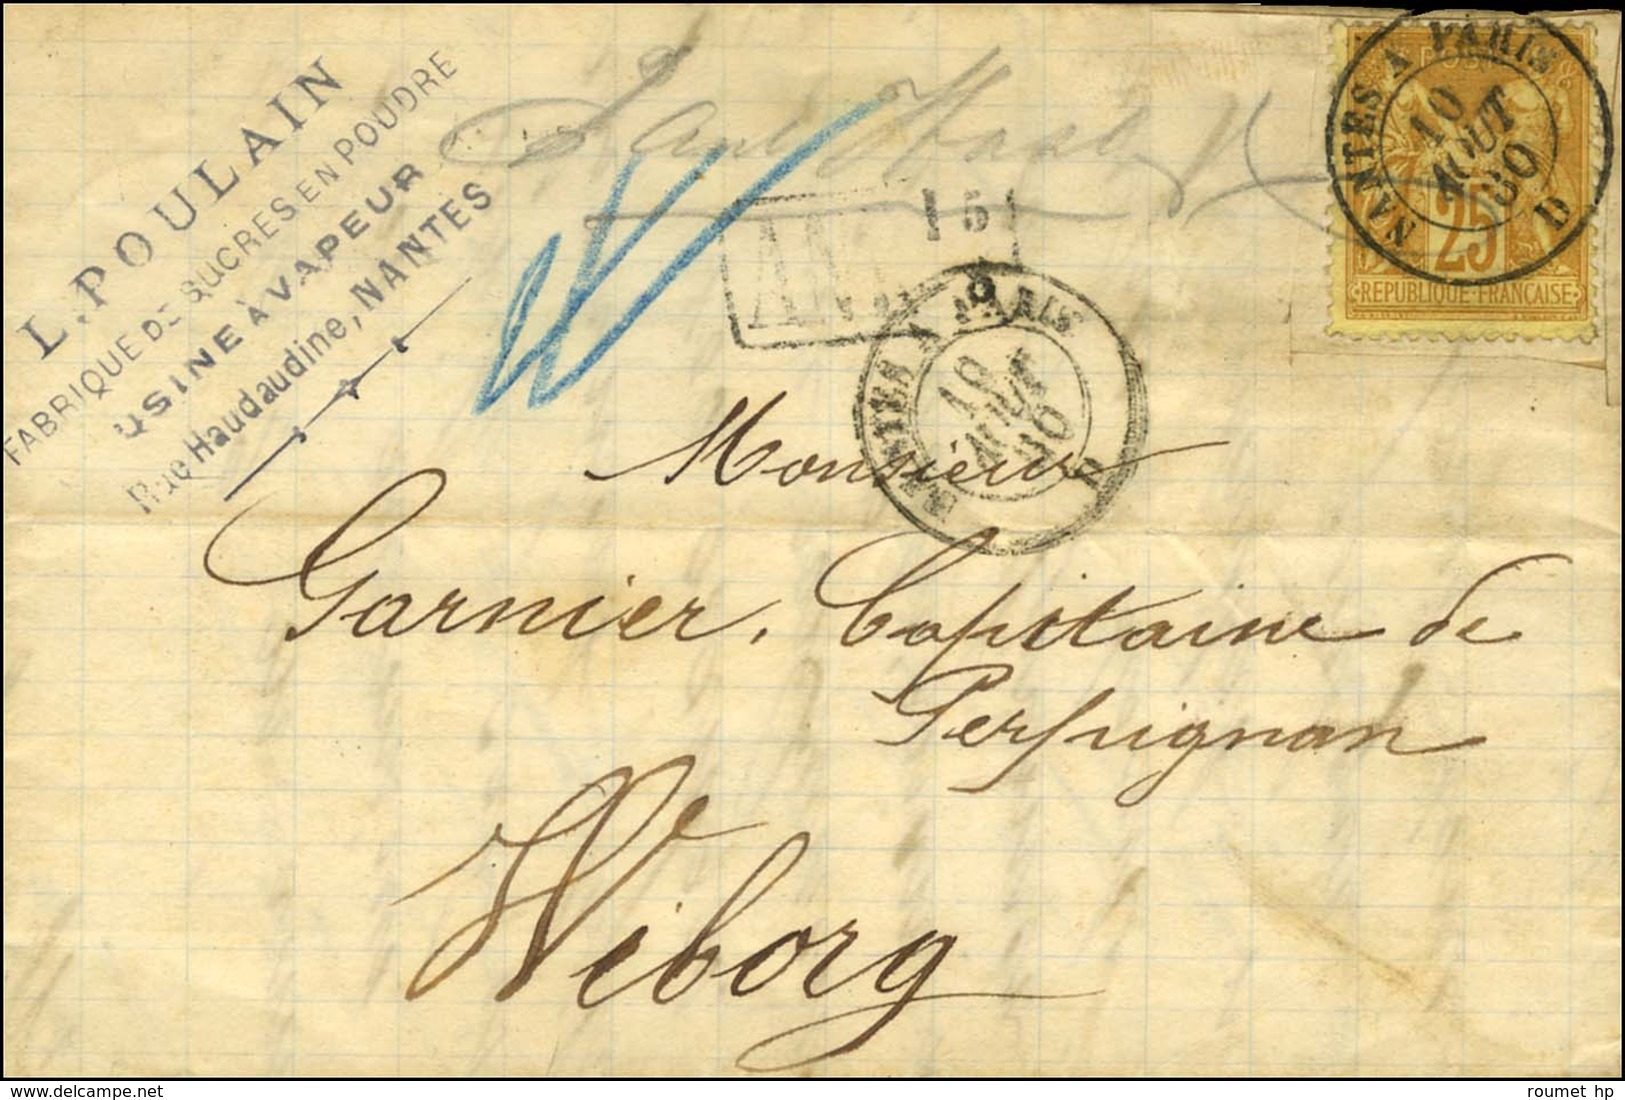 L. POULAIN
FABRIQUE DE SUCRES EN POUDRE
USINE À VAPEUR
Rue Haudaudine, NANTES
NANTES A PARIS
10
AOUT
80
D
25
REPUBLIQUE FRANÇAISE
15
NANTES A PARIS
10
AOUT
80
D
Monsieur
Garnier, Capitaine de
Perpignan
Wiborg
www.delcampe.net
roumet hp